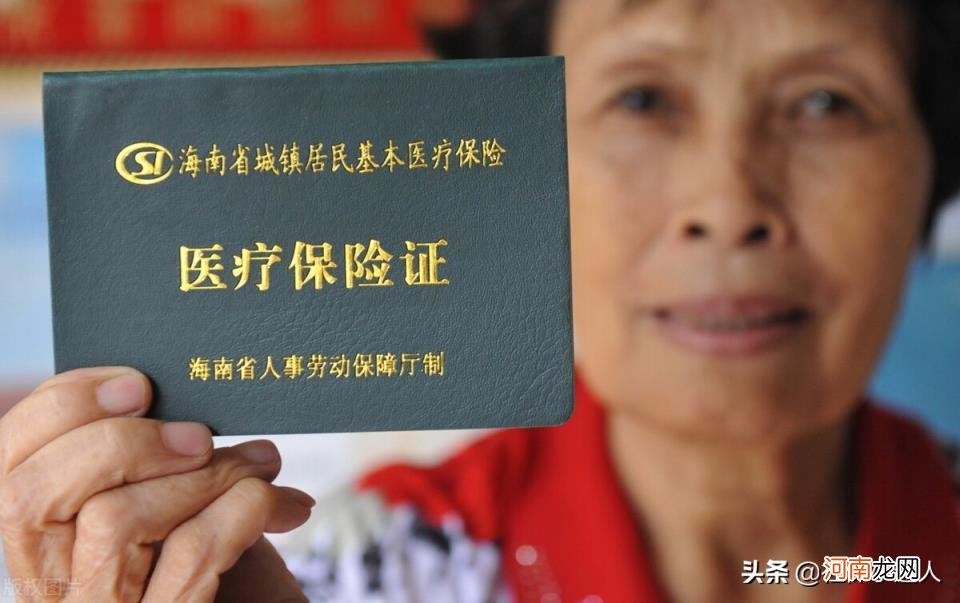 SI 海南省城镇居民基本医疗保险
医疗保险证
海南省人事劳动保障厅制
头条 @ 河南龙网 人
版权图片